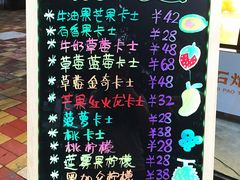 牛油果芒果卡士 ¥42
百香果卡士 ¥28
牛奶草莓卡士 ¥48
草莓蓝莓卡士 ¥68
草莓奇卡士 ¥48
芒果火龙卡士 ¥
菠萝卡士 ¥28
桃卡士 ¥38
桃柠檬 ¥38
莲雾果柠檬 ¥28
¥38
石
PAO